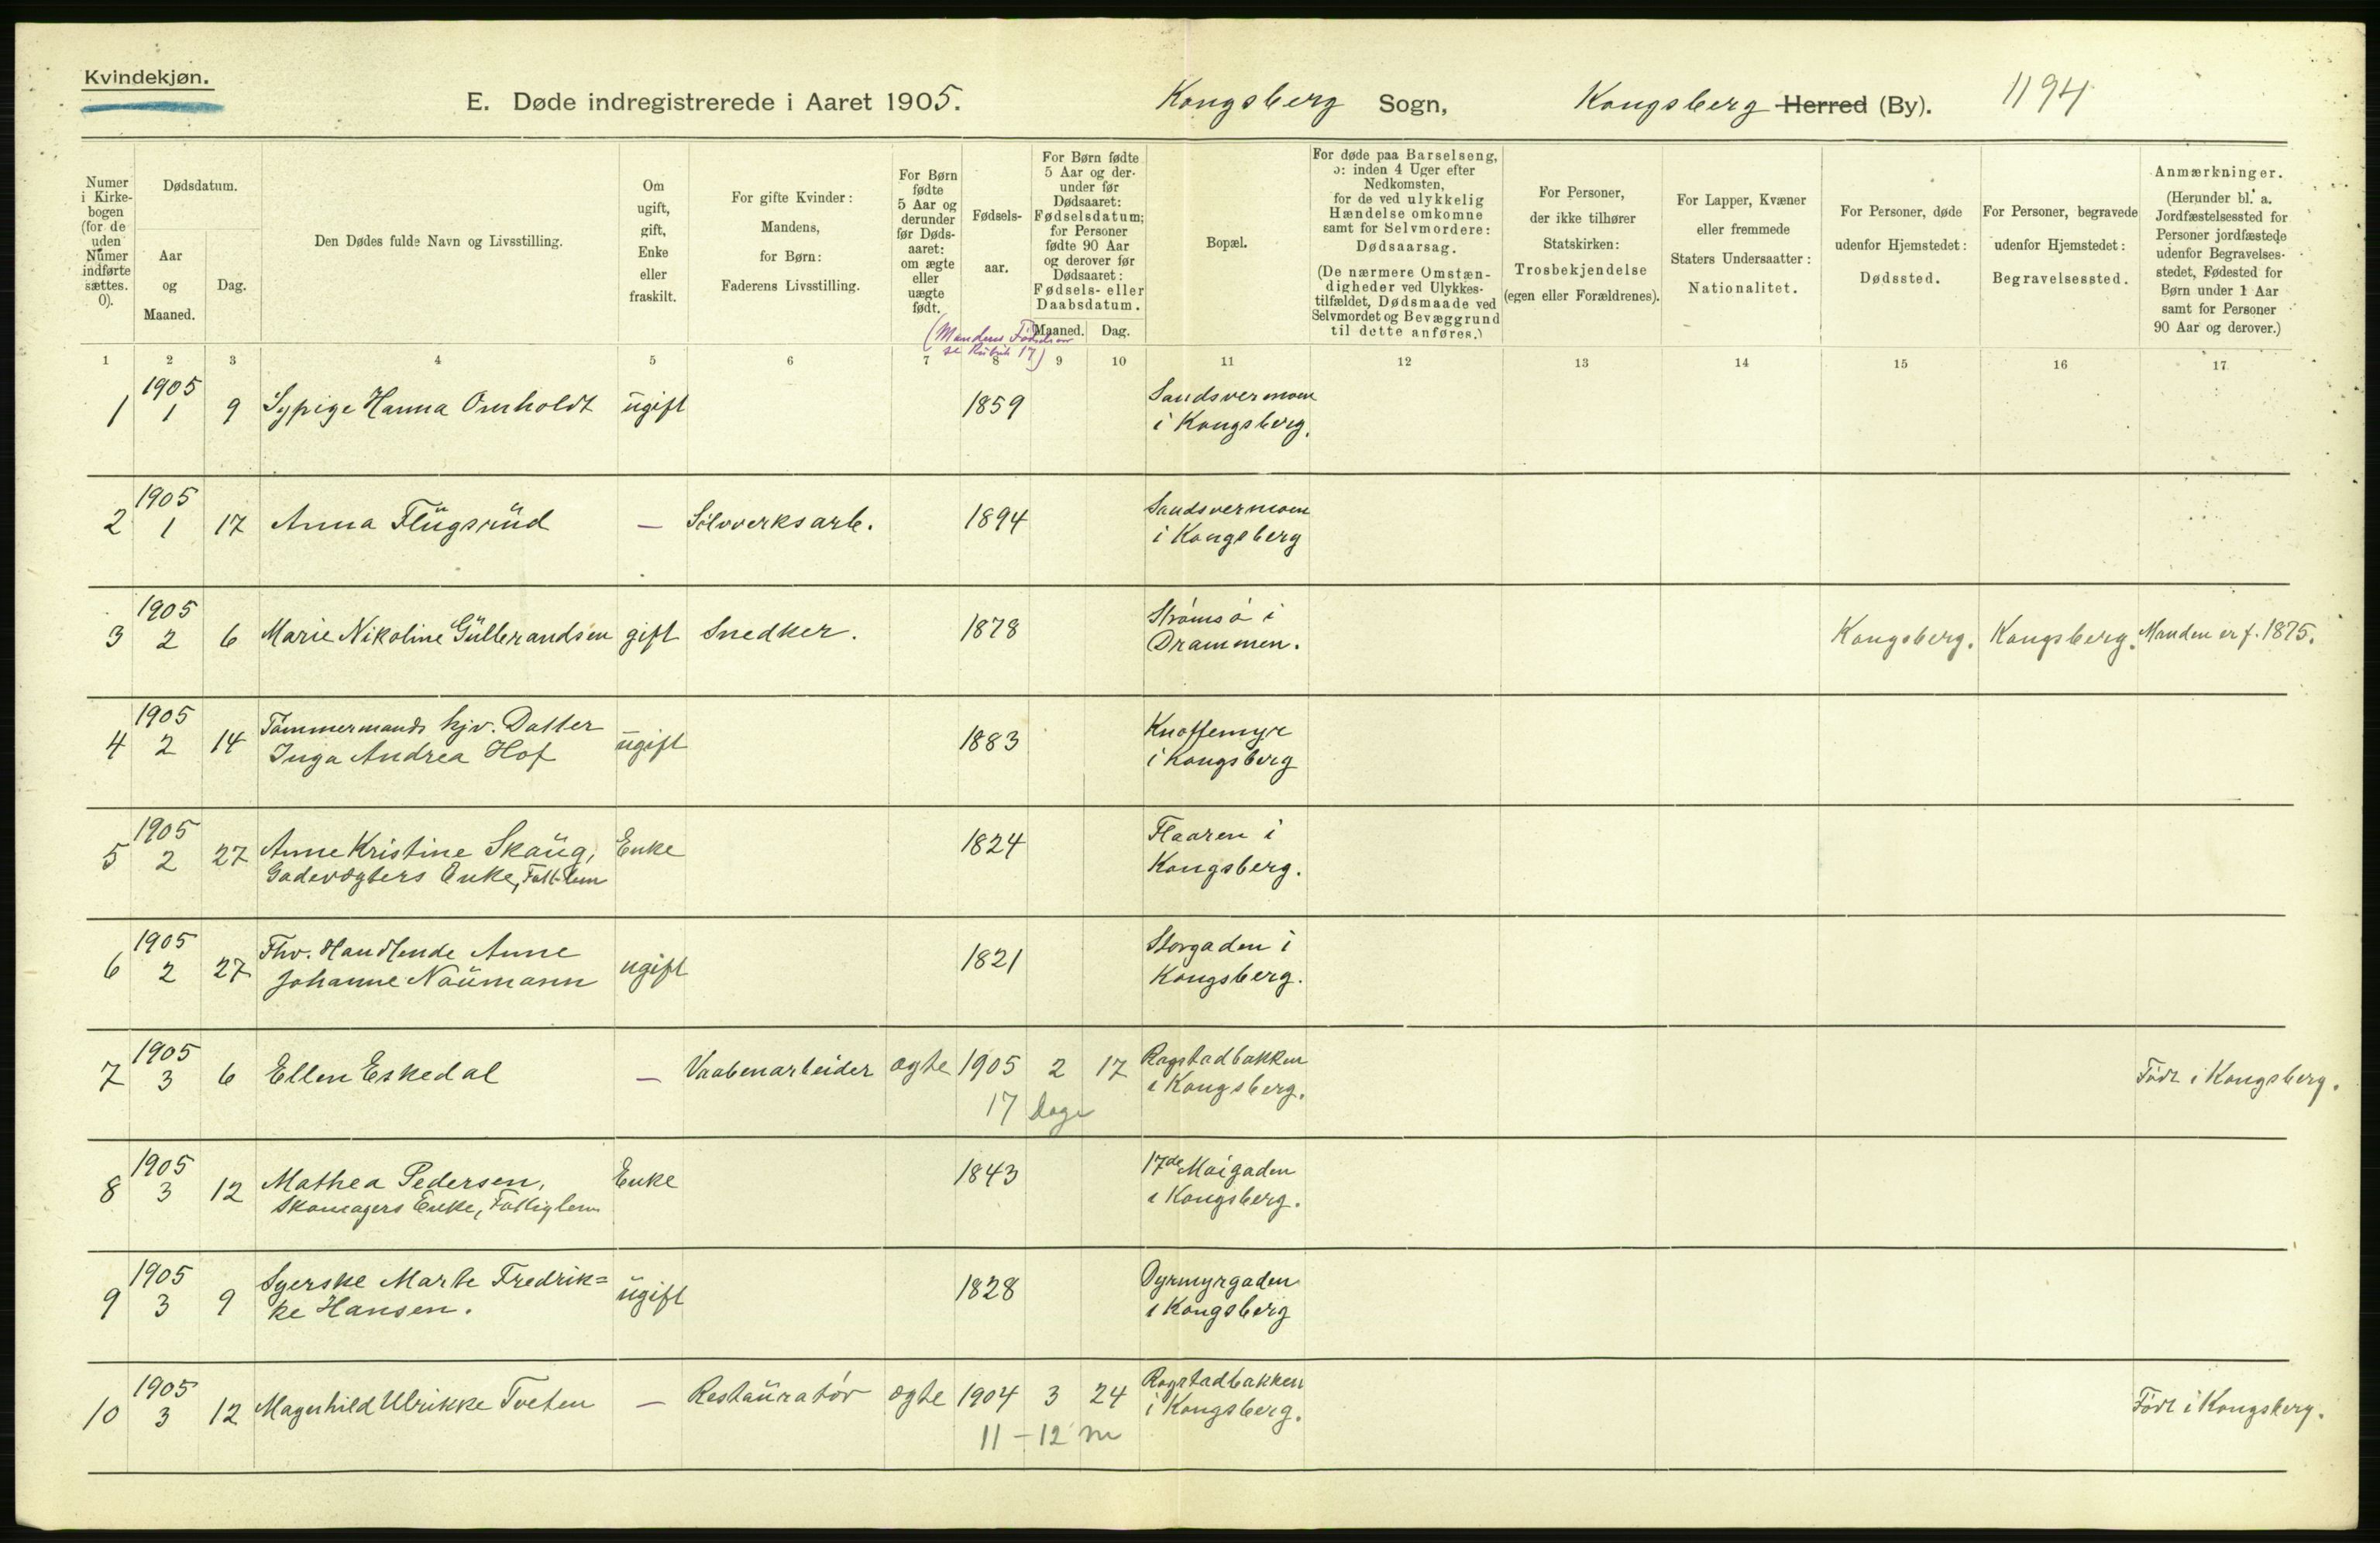 Kvindekjøn.
E. Døde indregistrerede i Aaret 1905.
Kongsberg Sogn,
Kongsberg Herred (By).
1194
Numer i Kirke-bogen (for de uden Numer indførte sættes. O).
Dødsdatum.
Aar og Maaned.
Dag.
Den Dødes fulde Navn og Livsstilling.
Om ugift, gift, Enke eller fraskilt.
For gifte Kvinder: Mandens, for Børn: Faderens Livsstilling.
For Børn fødte 5 Aar og derunder før Døds-aaret: om ægte eller uægte født.
Fødsels-aar.
For Børn fødte 5 Aar og der-under før Dødsaaret: Fødselsdatum; for Personer fødte 90 Aar og derover før Dødsaaret: Fødsels- eller Daabsdatum.
Maaned.
Dag.
Bopæl.
For døde paa Barselseng, ɔ: inden 4 Uger efter Nedkomsten, for de ved ulykkelig Hændelse omkomne samt for Selvmordere: Dødsaarsag. (De nærmere Omstæn-digheder ved Ulykkes-tilfældet, Dødsmaade ved Selvmordet og Bevæggrund til dette anføres.)
For Personer, der ikke tilhører Statskirken: Trosbekjendelse (egen eller Forældrenes).
For Lapper, Kvæner eller fremmede Staters Undersaatter: Nationalitet.
For Personer, døde udenfor Hjemstedet: Dødssted.
For Personer, begravede udenfor Hjemstedet: Begravelsessted.
Anmærkninger. (Herunder bl. a. Jordfæstelsessted for Personer jordfæstede udenfor Begravelses-stedet, Fødested for Børn under 1 Aar samt for Personer 90 Aar og derover.)
(Mandens Fødselsaar
se Rubrik 17)
1 2 3 4 5 6 7 8 9 10 11 12 13 14 15 16 17
1 1905 1 9 Sypige Hanna Omholdt ugift 1859 Sandsvermoen
i Kongsberg.
2 1905 1 17 Anna Flugsrud — Sølvverksarb. 1894 Sandsvermoen
i Kongsberg
3 1905 2 6 Marie Nikoline Gulbrandsen gift Snedker. 1878 Strømsø i
Drammen. Kongsberg. Kongsberg. Manden er f. 1875.
4 1905 2 14 Tømmermands hjv. Datter
Inga Andrea Hof ugift 1883 Knoffemyr
i Kongsberg
5 1905 2 27 Anne Kristine Skaug, Enke 1824 Flaaren i
Gadevogters Enke, Fatt-lem Kongsberg.
6 1905 2 27 Fhv. Handlende Anne
Johanne Naumann ugift 1821 Storgaden i
Kongsberg.
7 1905 3 6 Ellen Eskedal — Vaabenarbeider ægte 1905 2 17 Rogstadbakken
i Kongsberg. Født i Kongsberg.
17 Dage
8 1905 3 12 Mathea Pedersen, Enke 1843 17de Maigaden
Skomagers Enke, Fattiglem i Kongsberg.
9 1905 3 9 Syerske Marte Fredrik=
ke Hansen. ugift 1828 Dyrmyrgaden
i Kongsberg
10 1905 3 12 Magnhild Ulrikke Tveten — Restauratør ægte 1904 3 24 Rogstadbakken
i Kongsberg. Født i Kongsberg.
11–12 m